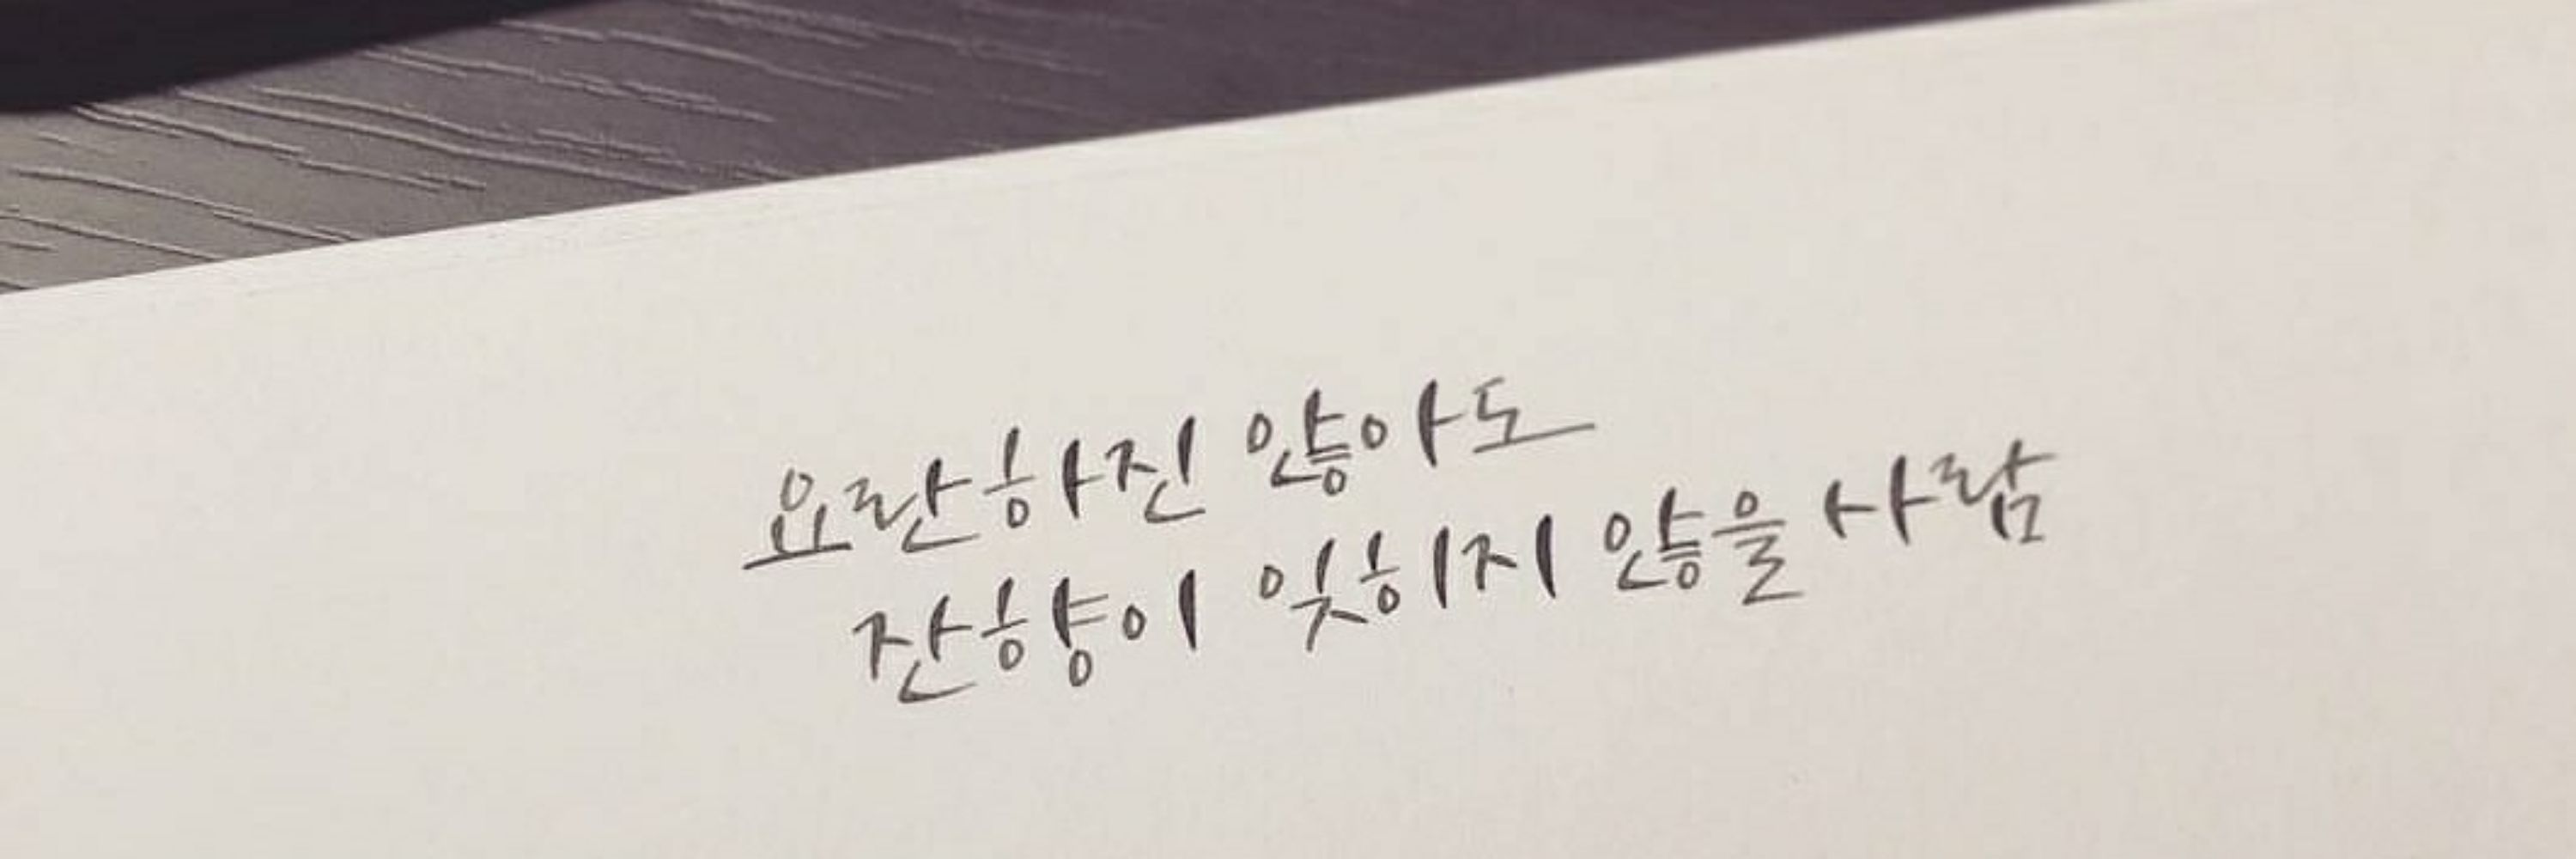 요란하진 않아도
잔향이 잊히지 않을 사람